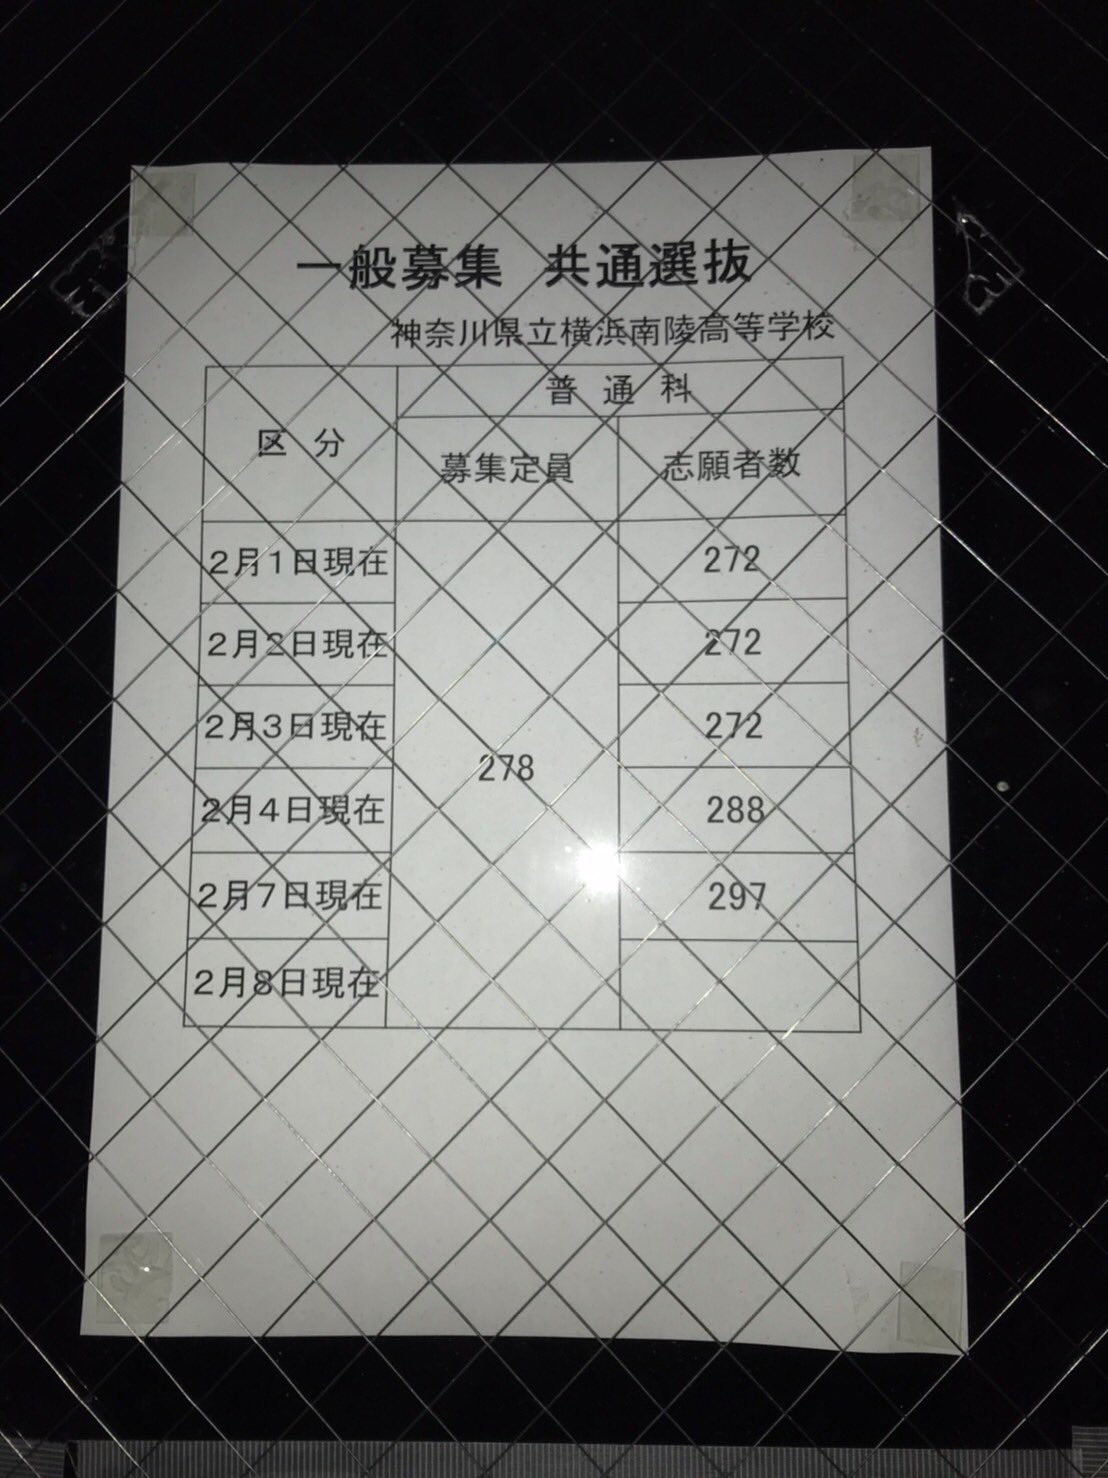 一般募集　共通選抜
神奈川県立横浜南陵高等学校
区　分
普　通　科
募集定員
志願者数
２月１日現在
272
２月２日現在
272
２月３日現在
272
278
２月４日現在
288
２月７日現在
297
２月８日現在